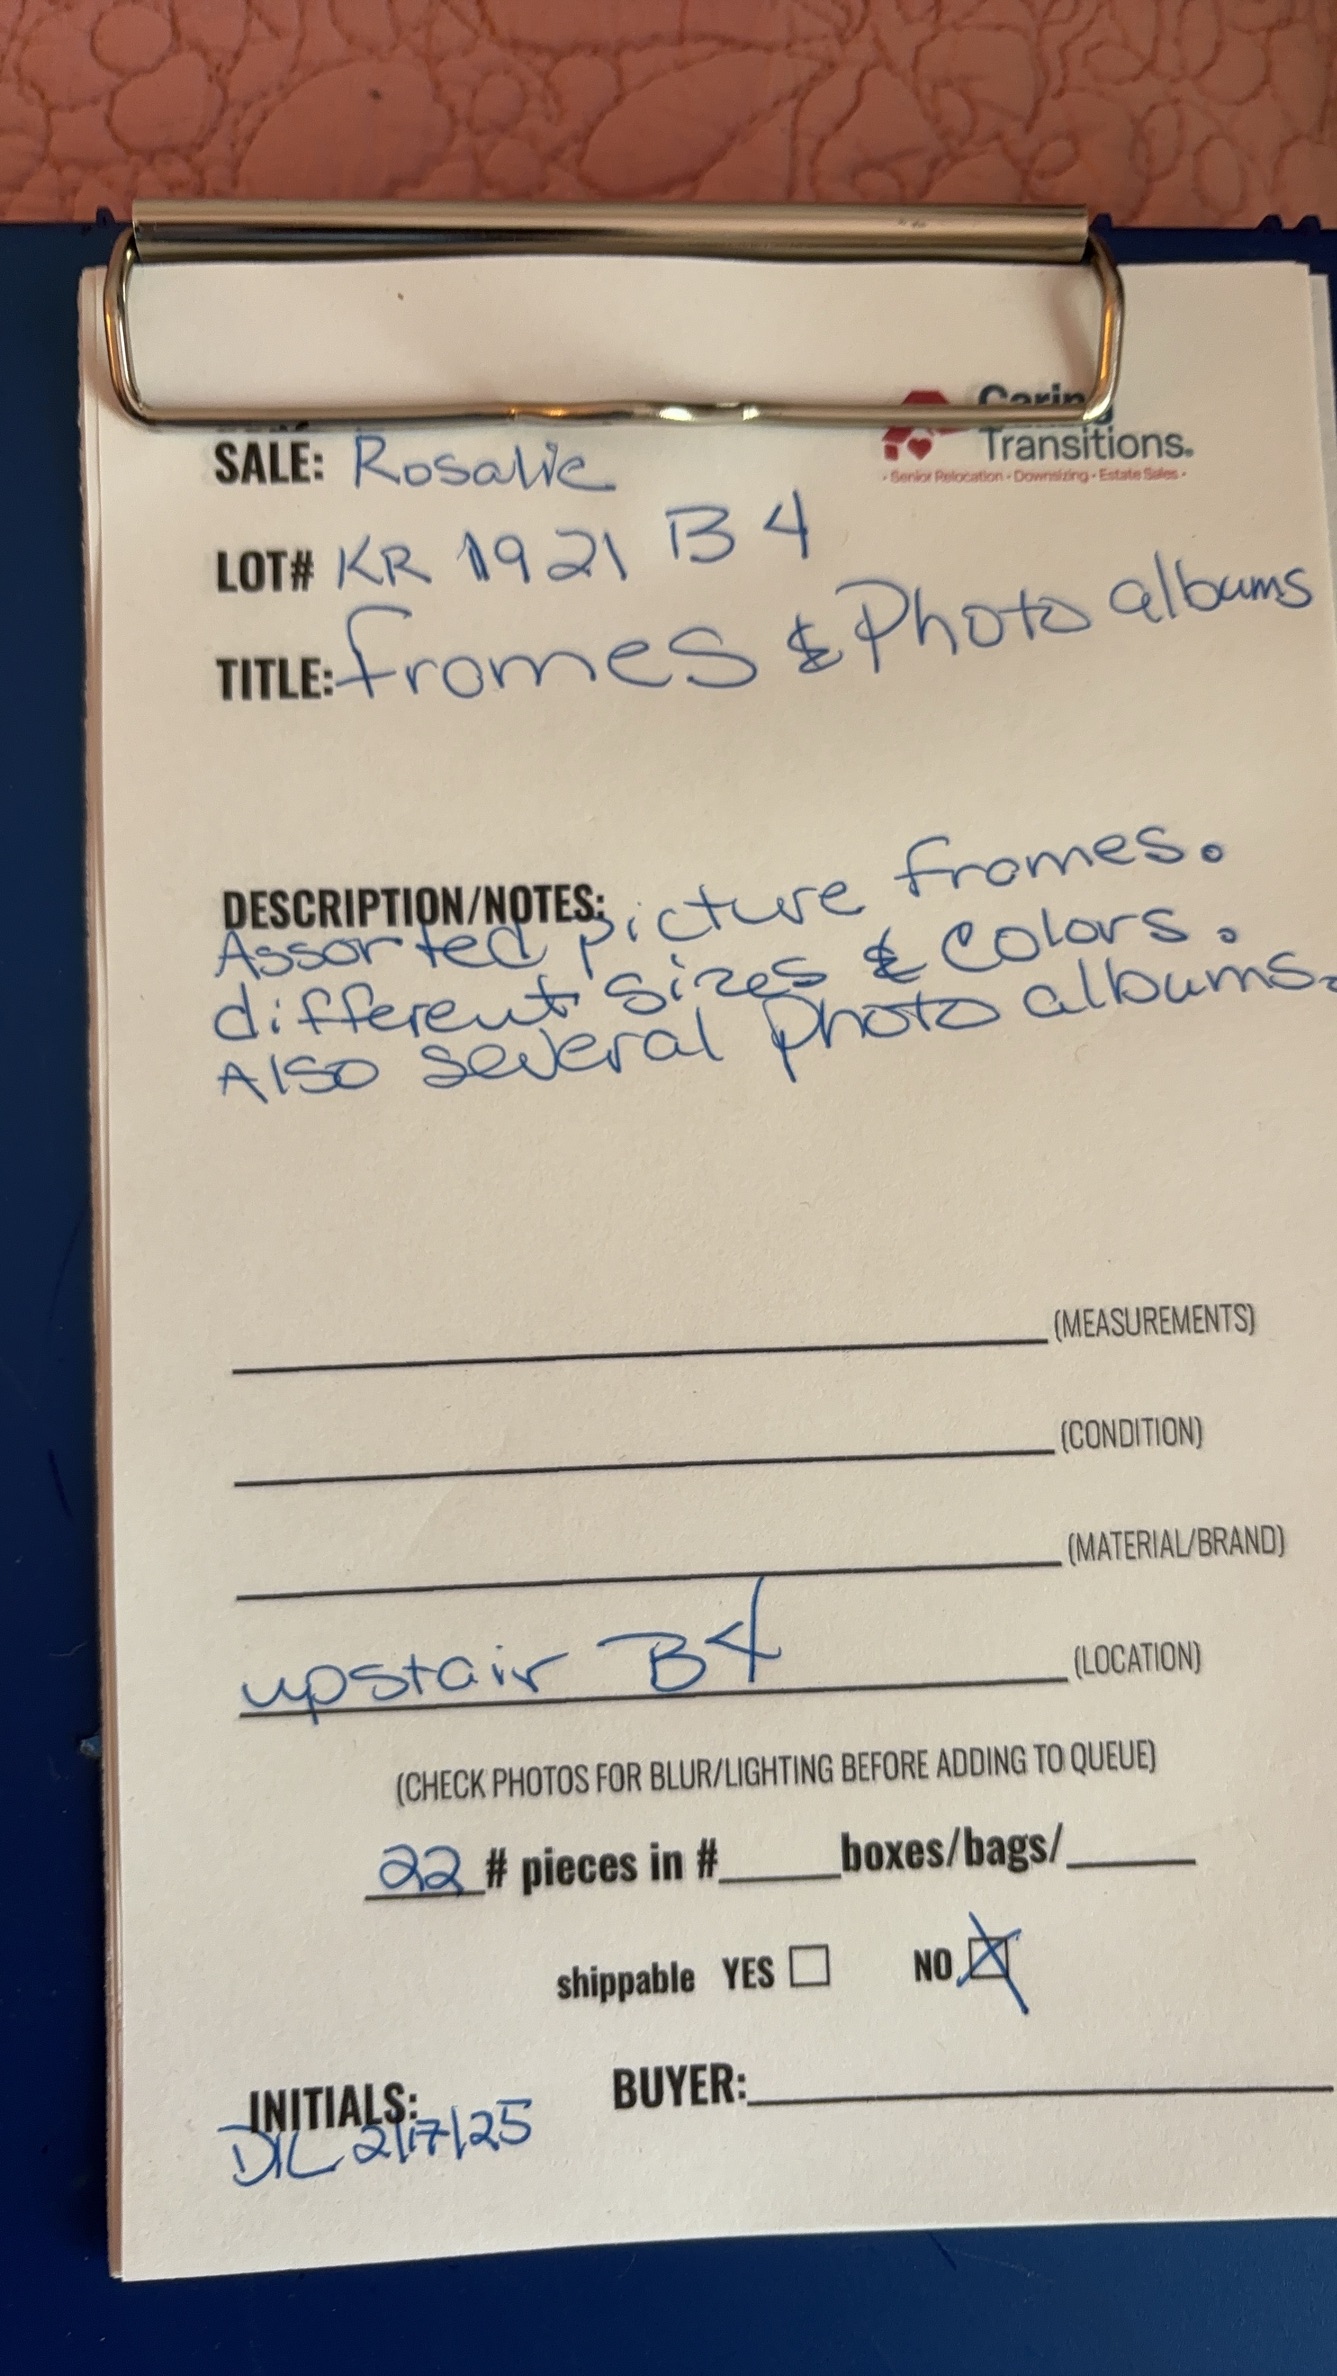 Caring
Transitions.
- Senior Relocation - Downsizing - Estate Sales -
SALE: Rosalie
LOT# KR 1921 B4
TITLE: frames & Photo albums
DESCRIPTION/NOTES:
Assorted picture frames.
different sizes & colors.
Also several photo albums.
(MEASUREMENTS)
(CONDITION)
(MATERIAL/BRAND)
upstair B4 (LOCATION)
(CHECK PHOTOS FOR BLUR/LIGHTING BEFORE ADDING TO QUEUE)
22 # pieces in #_____boxes/bags/_____
shippable YES ☐ NO ☒
INITIALS: BUYER:
DIL 2/17/25